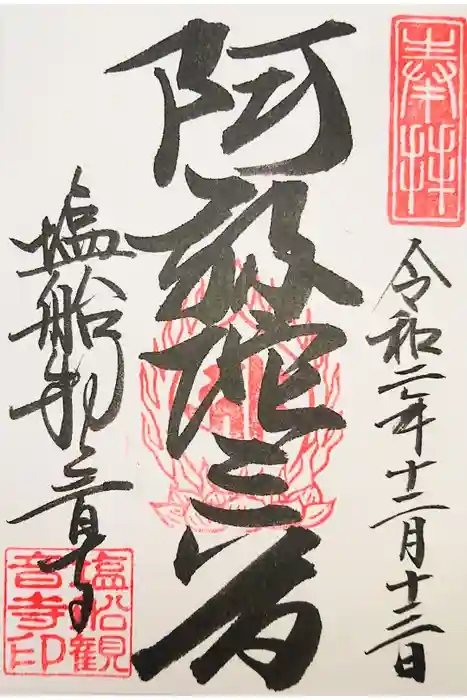 奉拝
令和二年十二月十三日
阿弥陀三尊
塩船観音寺
塩船観
音寺印